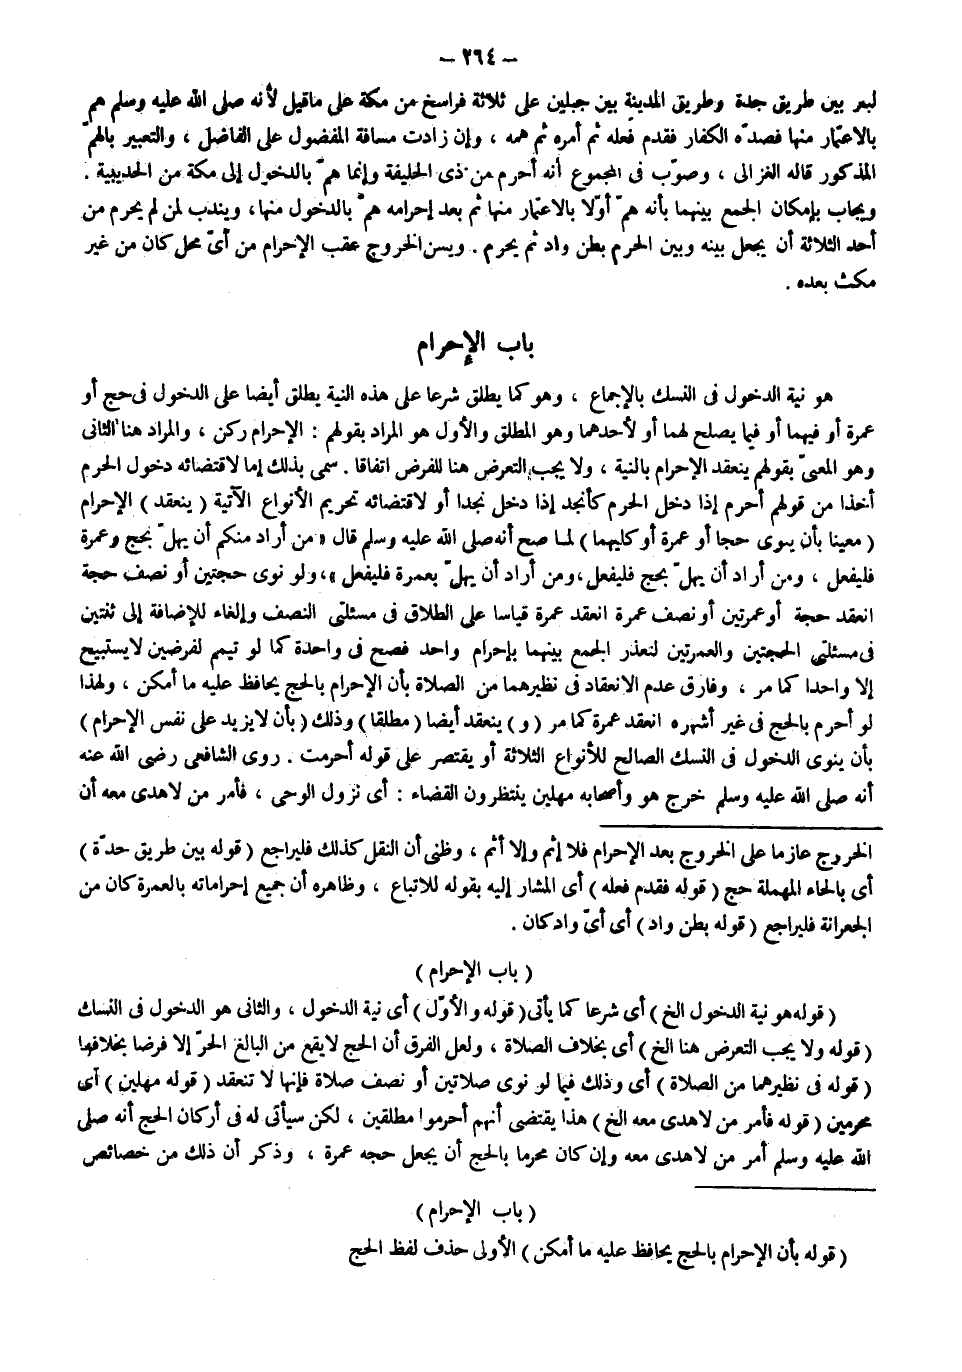 - ٢٦٤ -
لبعر بين طريق جدة وطريق المدينة بين جبلين على ثلاثة فراسخ من مكة على ماقيل لأنه صلى الله عليه وسلم هم
بالاعتمار منها فصدّه الكفار فقدم فعله ثم أمره ثم همه ، وإن زادت مسافة المفضول على الفاضل ، والتعبير بالهمّ
المذكور قاله الغزالى ، وصوّب فى المجموع أنه أحرم من ذى الحليفة وإنما همّ بالدخول إلى مكة من الحديبية .
ويجاب بإمكان الجمع بينهما بأنه همّ أوّلا بالاعتمار منها ثم بعد إحرامه همّ بالدخول منها، ويندب لمن لم يحرم من
أحد الثلاثة أن يجعل بينه وبين الحرم بطن واد ثم يحرم . ويسن الخروج عقب الإحرام من أىّ محل كان من غير
مكث بعده .
باب الإحرام
هو نية الدخول فى النسك بالإجماع ، وهو كما يطلق شرعا على هذه النية يطلق أيضا على الدخول فى حج أو
عمرة أو فيهما أو فيما يصلح لهما أو لأحدهما وهو المطلق والأول هو المراد بقولهم : الإحرام ركن ، والمراد هنا الثانى
وهو المعنىّ بقولهم ينعقد الإحرام بالنية ، ولا يجب التعرض هنا للفرض اتفاقا . سمى بذلك إما لاقتضائه دخول الحرم
أخذا من قولهم أحرم إذا دخل الحرم كأنجد إذا دخل نجدا أو لاقتضائه تحريم الأنواع الآتية ( ينعقد ) الإحرام
( معينا بأن ينوى حجا أو عمرة أو كليهما ) لما صح أنه صلى الله عليه وسلم قال « من أراد منكم أن يهلّ بحج وعمرة
فليفعل ، ومن أراد أن يهلّ بحج فليفعل ، ومن أراد أن يهلّ بعمرة فليفعل » ، ولو نوى حجتين أو نصف حجة
انعقد حجة أو عمرتين أو نصف عمرة انعقد عمرة قياسا على الطلاق فى مسئلتى النصف وإلغاء للإضافة إلى ثنتين
فى مسئلتى الحجتين والعمرتين لتعذر الجمع بينهما بإحرام واحد فصح فى واحدة كما لو تيمم لفرضين لايستبيح
إلا واحدا كما مر ، وفارق عدم الانعقاد فى نظيرهما من الصلاة بأن الإحرام بالحج يحافظ عليه ما أمكن ، ولهذا
لو أحرم بالحج فى غير أشهره انعقد عمرة كما مر ( و ) ينعقد أيضا ( مطلقا ) وذلك ( بأن لايزيد على نفس الإحرام )
بأن ينوى الدخول فى النسك الصالح للأنواع الثلاثة أو يقتصر على قوله أحرمت . روى الشافعى رضى الله عنه
أنه صلى الله عليه وسلم خرج هو وأصحابه مهلين ينتظرون القضاء : أى نزول الوحى ، فأمر من لاهدى معه أن
الخروج عازما على الخروج بعد الإحرام فلا إثم وإلا أثم ، وظنى أن النقل كذلك فليراجع ( قوله بين طريق حدّة )
أى بالحاء المهملة حج ( قوله فقدم فعله ) أى المشار إليه بقوله للاتباع ، وظاهره أن جميع إحراماته بالعمرة كان من
الجعرانة فليراجع ( قوله بطن واد ) أى أىّ واد كان .
( باب الإحرام )
( قوله هو نية الدخول الخ ) أى شرعا كما يأتى ( قوله والأوّل ) أى نية الدخول ، والثانى هو الدخول فى النسك
( قوله ولا يجب التعرض هنا الخ ) أى بخلاف الصلاة ، ولعل الفرق أن الحج لايقع من البالغ الحرّ إلا فرضا بخلافها
( قوله فى نظيرهما من الصلاة ) أى وذلك فيما لو نوى صلاتين أو نصف صلاة فإنها لا تنعقد ( قوله مهلين ) أى
محرمين ( قوله فأمر من لاهدى معه الخ ) هذا يقتضى أنهم أحرموا مطلقين ، لكن سيأتى له فى أركان الحج أنه صلى
الله عليه وسلم أمر من لاهدى معه وإن كان محرما بالحج أن يجعل حجه عمرة ، وذكر أن ذلك من خصائص
( باب الإحرام )
( قوله بأن الإحرام بالحج يحافظ عليه ما أمكن ) الأولى حذف لفظ الحج